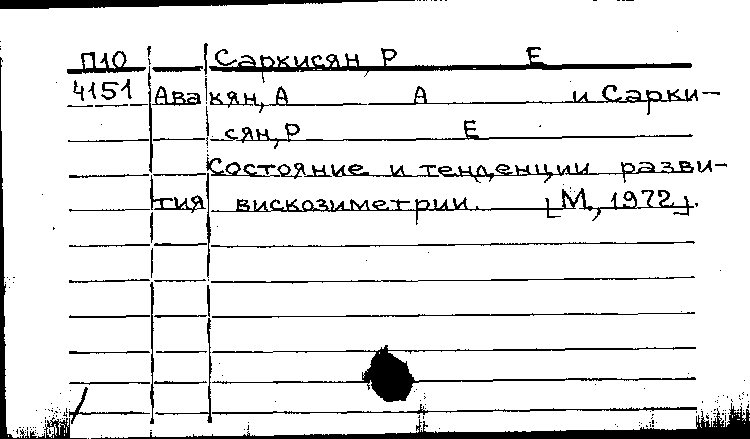 П10 Саркисян, Р Е
4151 Авакян, А А и Сарки-
сян, Р Е
Состояние и тенденции разви-
тия вискозиметрии. [М., 1972].